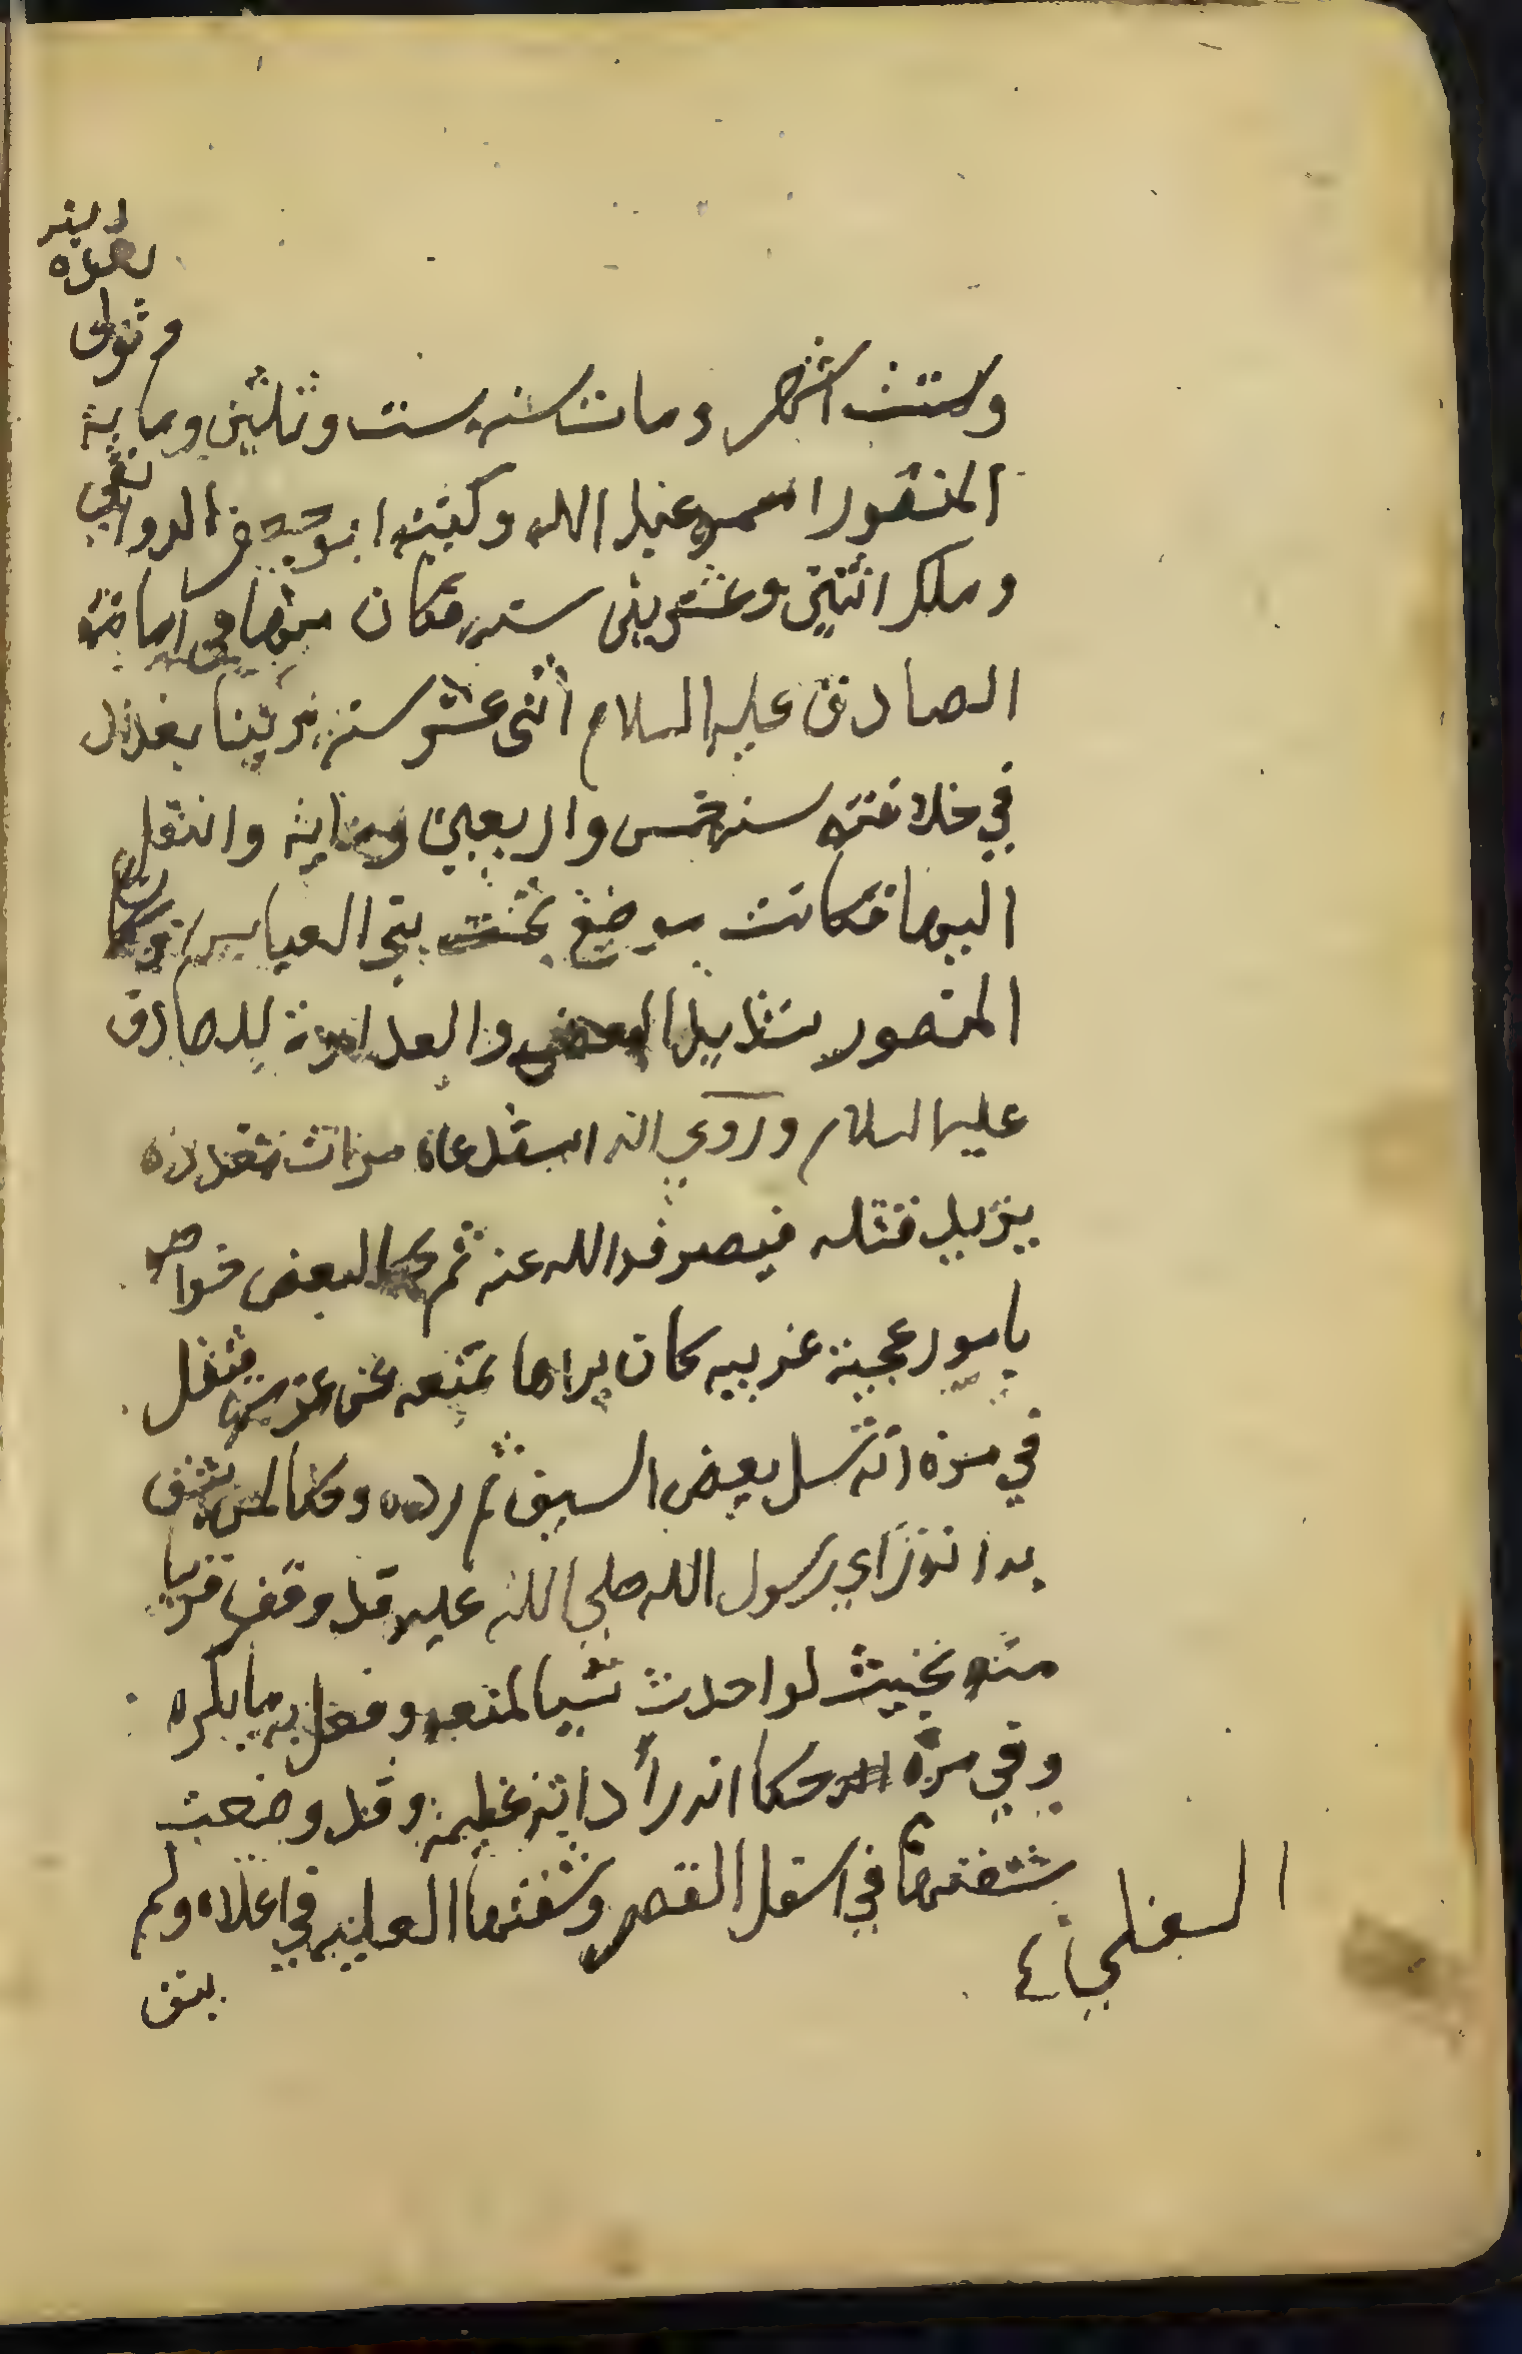 وتولى
بعده
وستت اشهر ومات سنه ست وثلثين وماية
المنصور اسمه عبد الله وكنيته ابو جعفر الدوانقي
وملك اثنتين وعشرين سنه فكان منها في امامة
الصادق عليه السلام اثنى عشر سنه بنا بغداد
في خلافته سنه خمس واربعين وماية وانتقل
اليها فكانت موضع تخت بني العباس وكان
المنصور شديد البغض والعداوة للصادق
عليه السلام وروي انه استدعاه مرات متعدده
يريد قتله فيصرفه الله عنه ثم حكا لبعض خواصه
بامور عجيبة غريبه كان يراها تمنعه عن عزمه فنقل
في مرة انه سل بعض السيف ثم رده وحكا لمن يثق
به انه رأي رسول الله صلى الله عليه قد وقف قريبا
منه بحيث لو احدث شيا لمنعه وفعل به ما يكره
وفي مرة حكا انه رأ دابة عظيمة وقد وضعت
شفتها في اسفل القصر وشفتها العليه في اعلاه ولم
السفلي
يتق